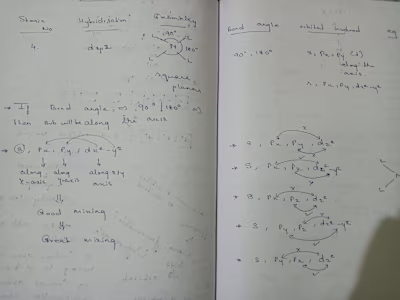 Steric No Hybridisation Geometry
4. dsp2
90°
180°
square planar
→ If Bond angle is 90° / 180° of
then sub will be along the axis
→ S, Px, Py, dx²-y²
along x-axis along y-axis along x/y axis
Good mixing
Great mixing
Bond angle orbital hydrid eg
90°, 180° Px Py
along the axis
s, Px, Py, dx²-y²
→ S, Px, Py, dz²
→ S, Px, Pz, dx²-y²
→ S, Px, Pz, dz²
→ S, Py, Pz, dx²-y²
→ S, Py, Pz, dz²